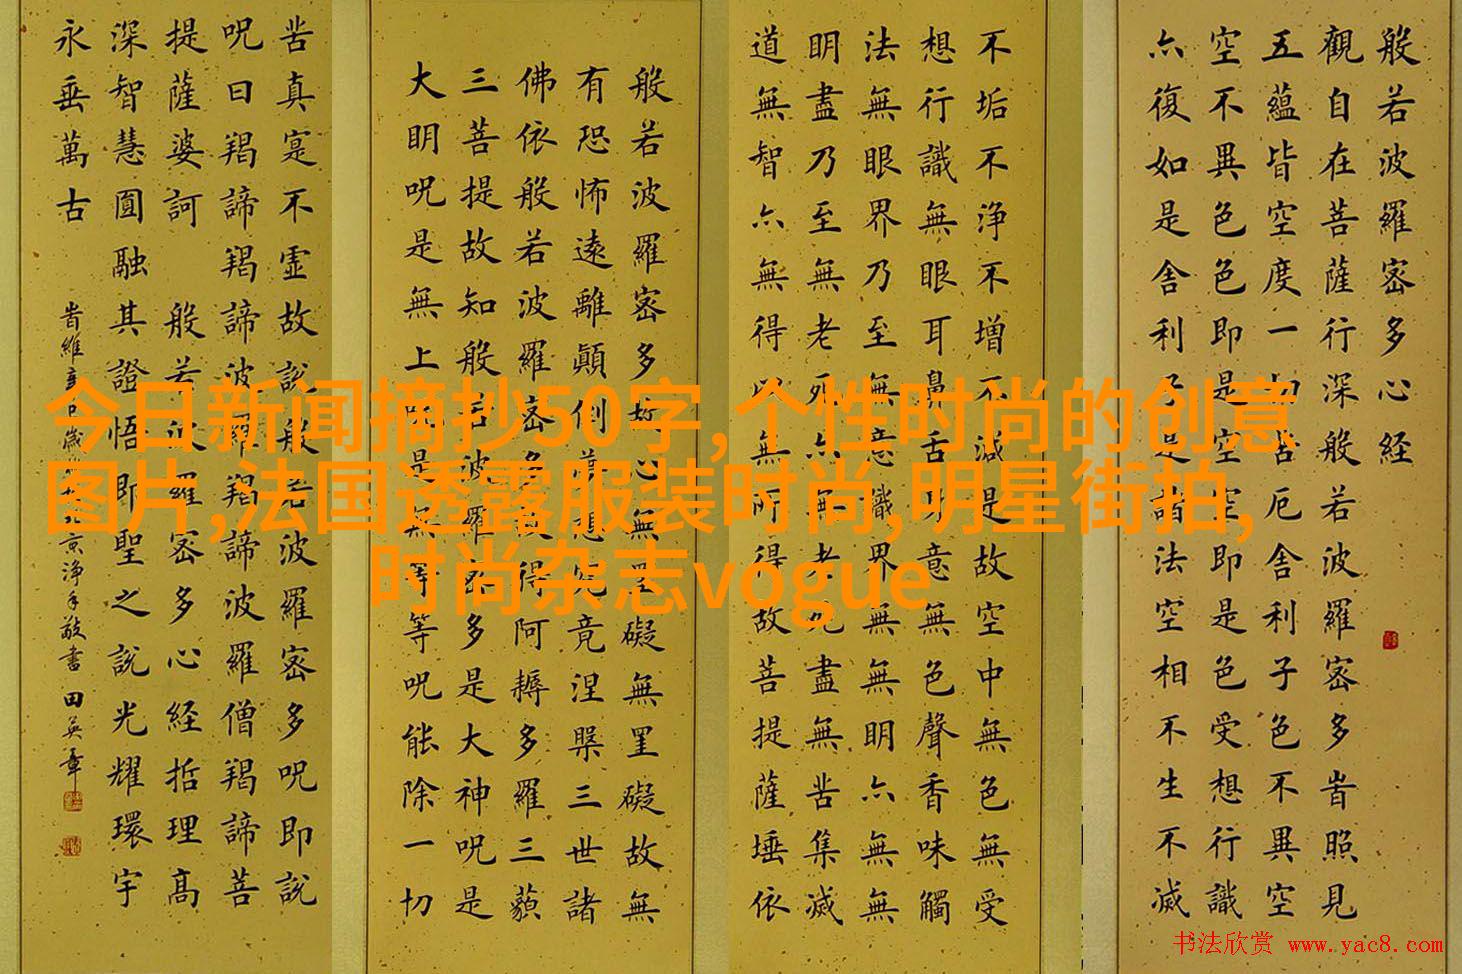 般若波羅密多心経
觀自在菩薩行深般若波羅密多峕照見
五蘊皆空度一切苦厄舍利子色不異空
空不異色色即是空空即是色受想行識
亦復如是舍利子是諸法空相不生不滅
不垢不淨不增不減是故空中無色無受
想行識無眼耳鼻舌身意無色聲香味觸
法無眼界乃至無意識界無無明亦無無
明盡乃至無老死亦無老死盡無苦集滅
道無智亦無得以無所得故菩提薩埵依
般若波羅密多故心無罣礙無罣礙故無
有恐怖遠離顛倒夢想究竟涅槃三世諸
佛依般若波羅密多故得阿耨多羅三藐
三菩提故知般若波羅密多是大神呪是
大明呪是無上呪是無等等呪能除一切
苦真寔不虛故說般若波羅密多呪即說
呪曰羯諦羯諦波羅羯諦波羅僧羯諦菩
提薩婆訶 般若波羅密多心経括理高
深智慧圓融其證悟即聖之說光耀環宇
永垂萬古
峕維 歲 京淨手敬書 田英章
今日新闻摘抄50字,个性时尚的创意
图片,法国透露服装时尚,明星街拍,
时尚杂志vogue
书法欣赏 www.yac8.com